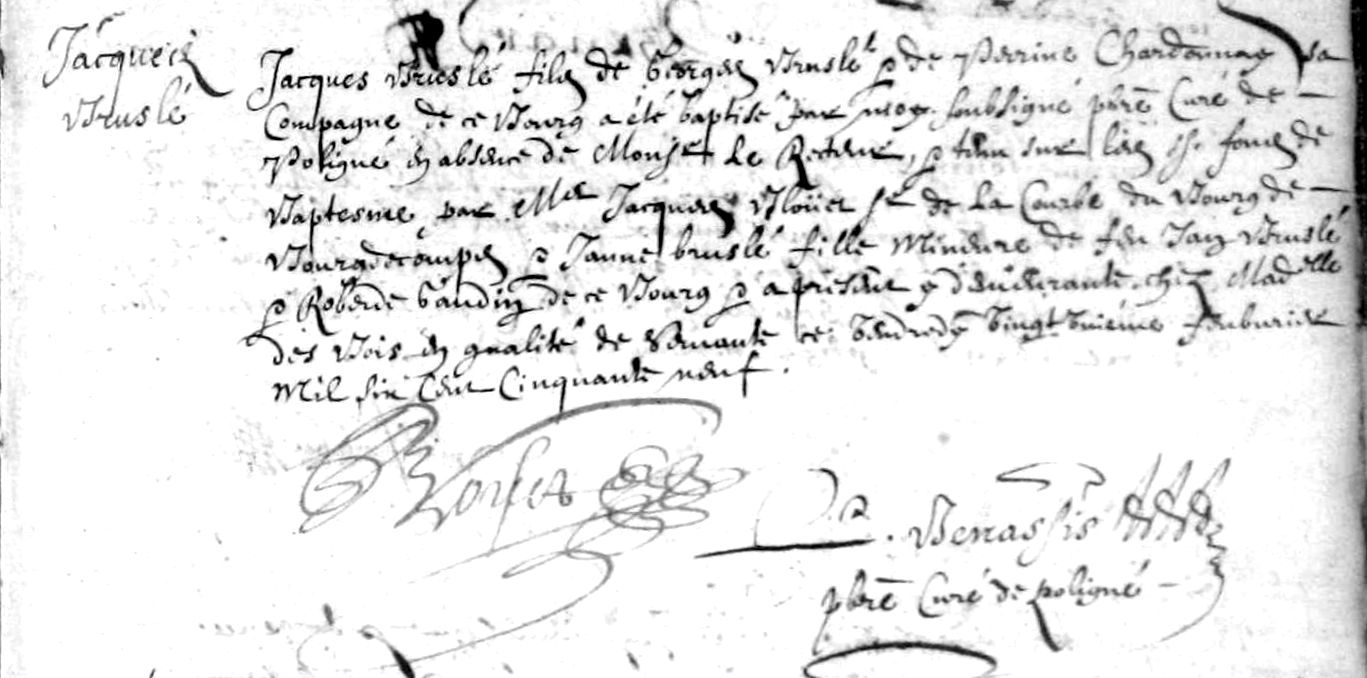 Jacques
Bruslé
Jacques Bruslé filz de Georges Bruslé & de Perrine Chardonnay sa
Compagne de ce Bourg a été baptisé par moy soubsigné pbrē Curé de
Poligné en absence de Monsr Le Recteur, & tenu sur les ss. fons de
Baptesme par Mre Jacques Bloüet sr de La Courbe du Bourg de
Bourgdecompes & Janne bruslé fille Mineure de feu Jan Bruslé
& Robende Gaudin de ce Bourg & a present y demeurante chez Madelle
des Bois en qualité de Servante ce Vendredy Vingt huieme feuburier
Mil six Cent Cinquante neuf.
Benassis
pbrē Curé de poligné